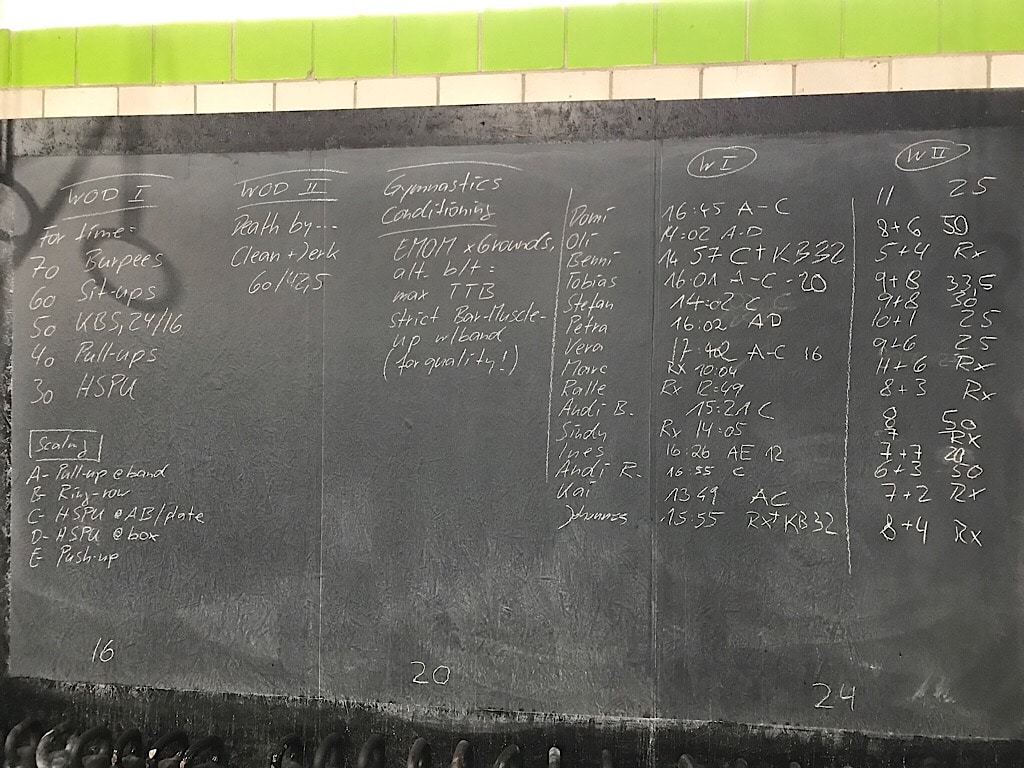 WOD I
For time:
70 Burpees
60 Sit-ups
50 KBS, 24/16
40 Pull-ups
30 HSPU
Scaling
A- Pull-up @ band
B- Ring-row
C- HSPU @ AB/plate
D- HSPU @ box
E- Push-up
WOD II
Death by...
Clean + Jerk
60/42,5
Gymnastics
Conditioning
EMOM x Grounds,
alt. b/t:
max TTB
strict Bar-Muscle-
up w/band
(for quality!)
W I
W II
Domi 16:45 A-C 11 25
Oli 14:02 A-D 8+6 50
Benni 14 57 C+KB32 5+4 Rx
Tobias 16:01 A-C -20 9+8 33,5
Stefan 14:02 C 9+8 30
Petra 16:02 AD 10+1 25
Vera 17:42 A-C 16 9+6 25
Marc Rx 10:04 11+6 Rx
Ralle Rx 12:49 8+3 Rx
Andi B. 15:21 C 8 50
Sindy Rx 14:05 7 Rx
Ines 16:26 AE 12 7+7 20
Andi R. 16:55 C 6+3 50
Kai 13 49 AC 7+2 Rx
Johannes 15:55 Rx+KB32 8+4 Rx
16
20
24